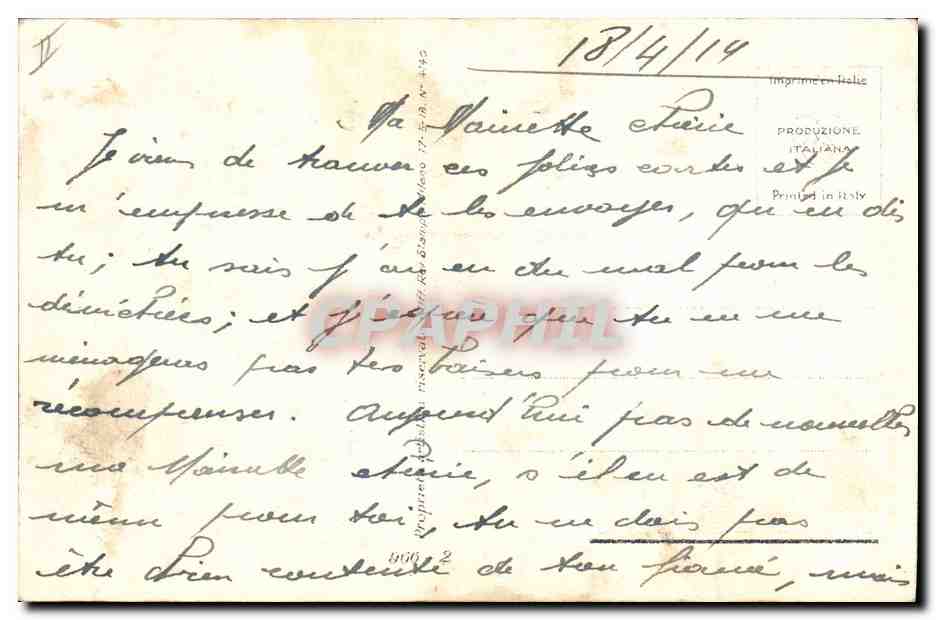 II
18/4/19
Imprimé en Italie
PRODUZIONE
ITALIANA
Printed in Italy
Ma Mainette chérie
Je viens de trouver ces jolies cartes et je
m'empresse de te les envoyer, qu'en dis
tu; tu sais j'ai eu du mal pour les
dénichées; et j'espère que tu ne me
ménageras pas tes baisers pour me
récompenser. Aujourd'hui pas de nouvelles
ma Mainette chérie, s'il en est de
même pour toi, tu ne dois pas
être bien contente de ton fiancé, mais
CPAPHIL
966 2